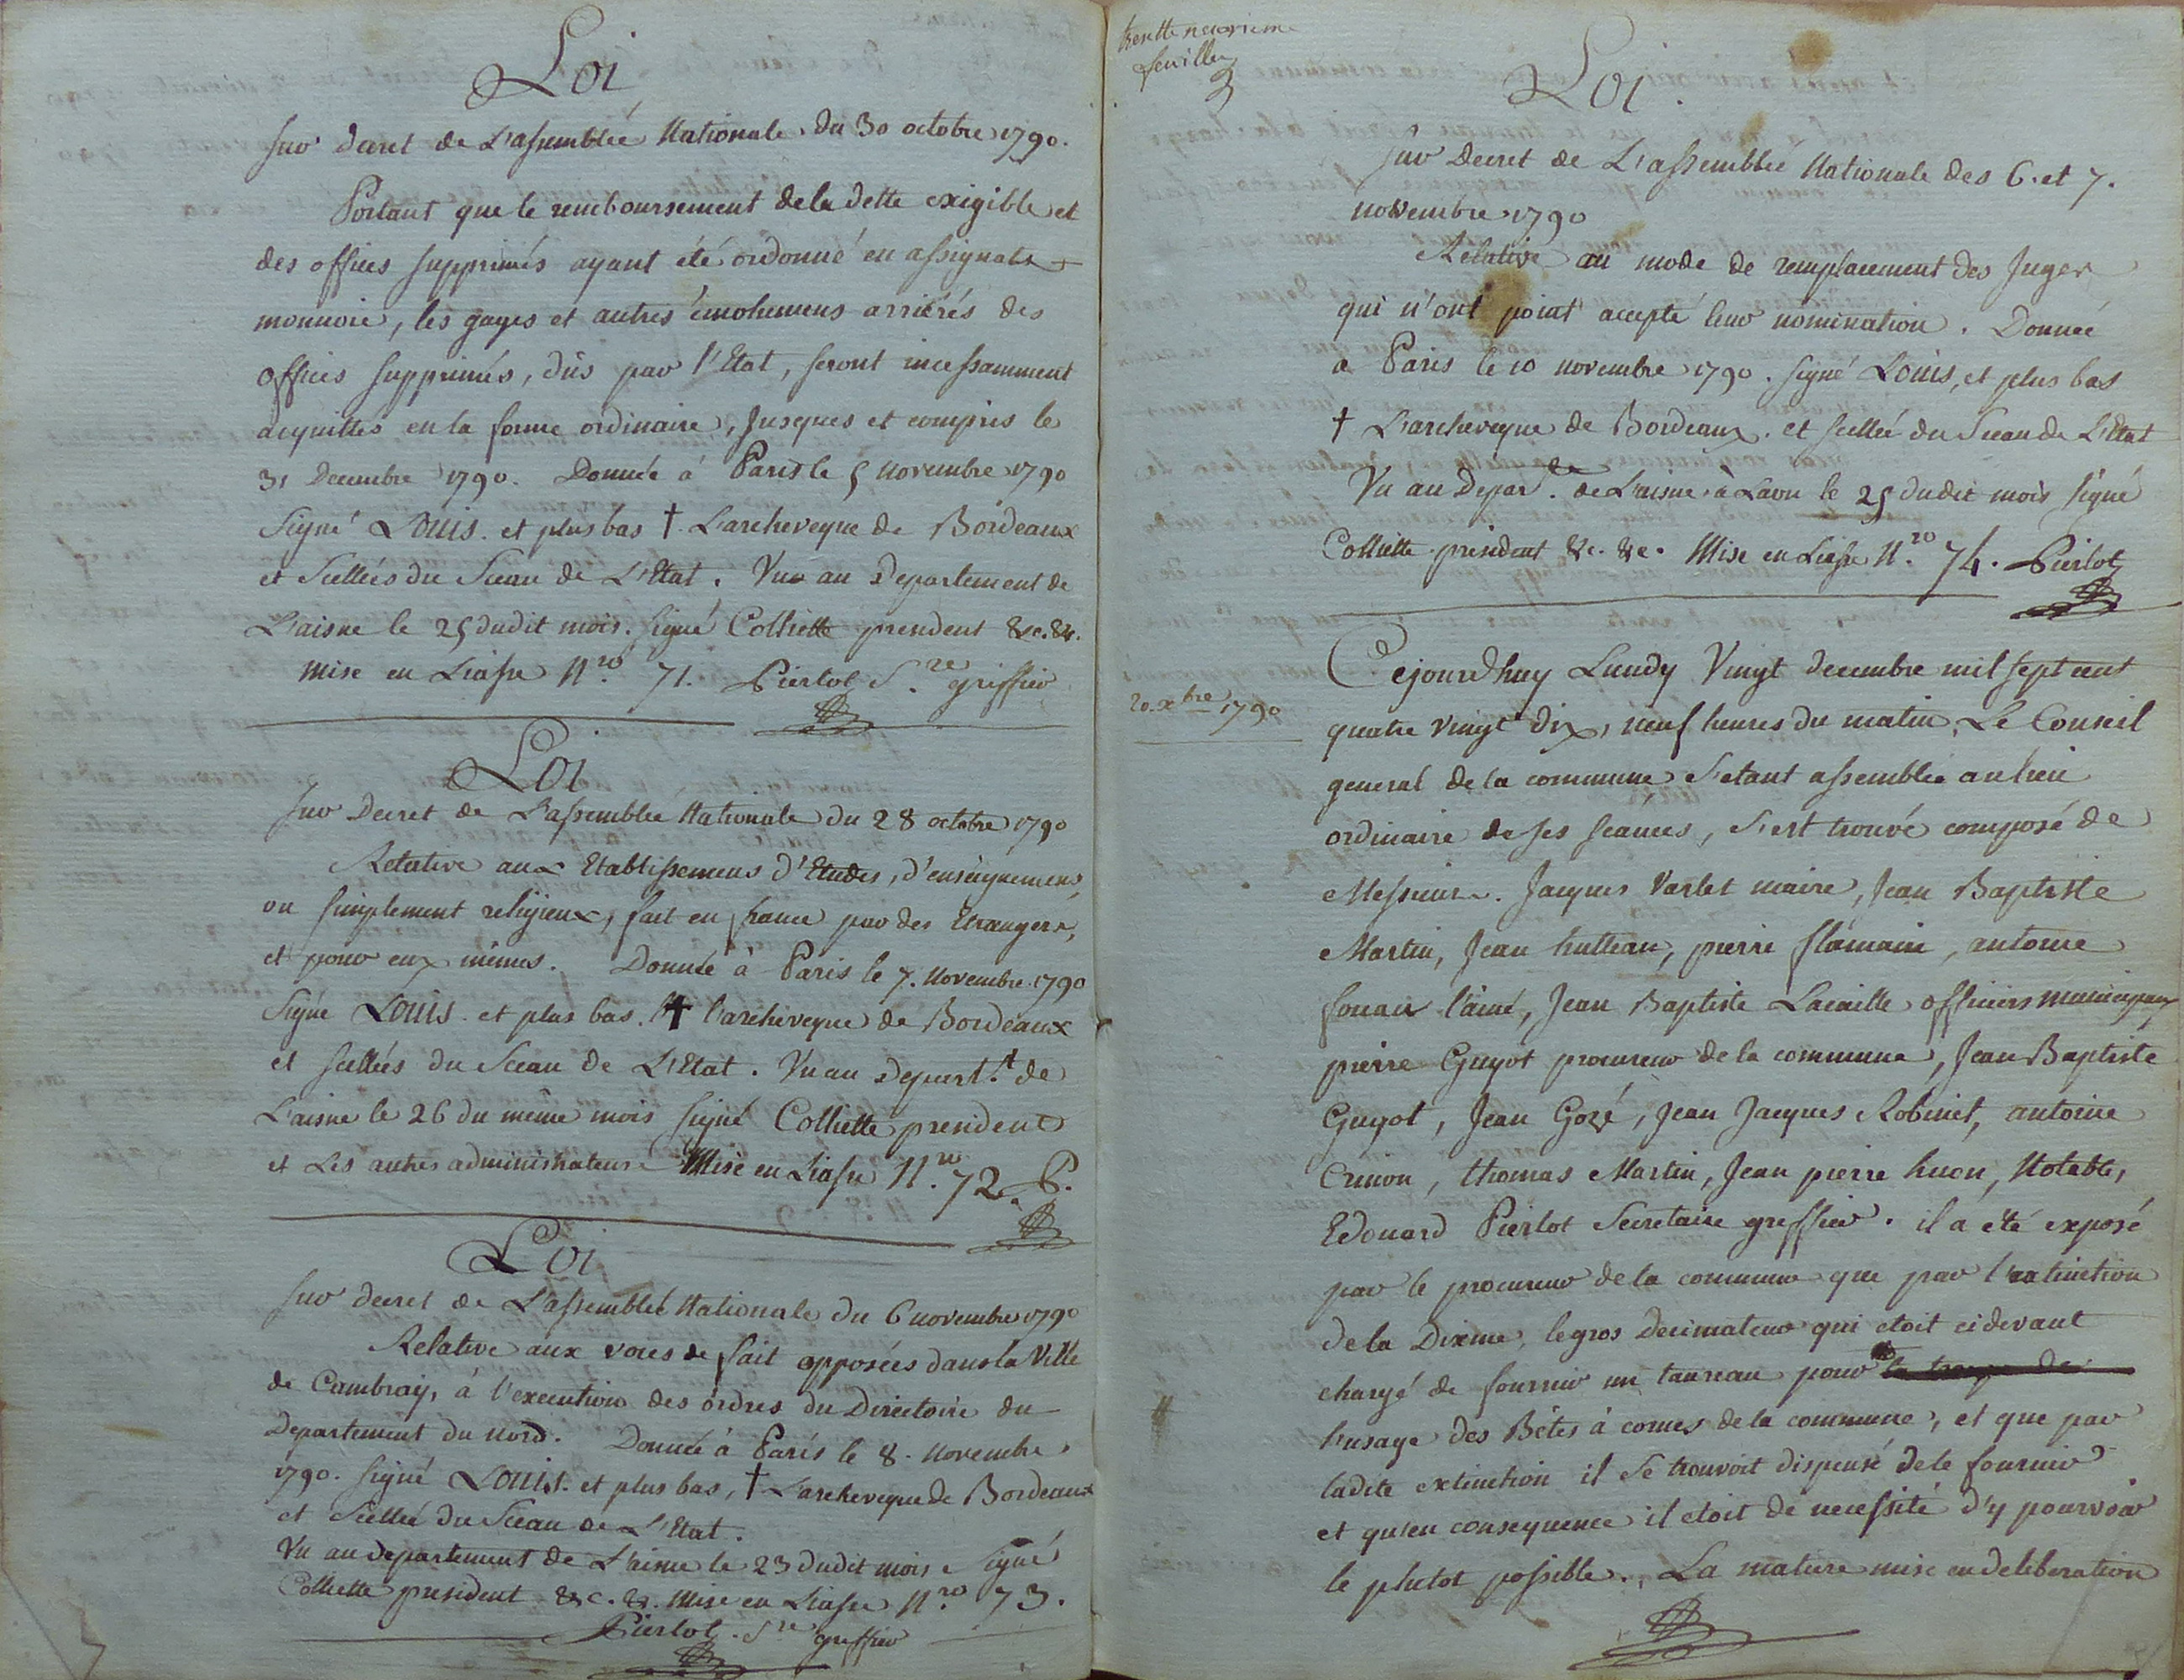 Loi
sur decret de L'assemblée Nationale du 30 octobre 1790.
Portant que le remboursement de la dette exigible et
des offices supprimés ayant été ordonné en assignats
monnoie, les gages et autres émolumens arriérés des
offices supprimés, dûs par l'Etat, seront incessamment
acquittés en la forme ordinaire, Jusques et compris le
31 Decembre 1790. Donnée à Paris le 5 novembre 1790
Signé Louis. et plus bas † L'archeveque de Bordeaux
et Scellées du Sceau de L'Etat. Vu au Departement de
L'aisne le 25 dudit mois. signé Colliette president &c. &c.
Mise en Liasse N.ro 71. Pierlot S.re greffier
Loi
sur Decret de L'assemblée Nationale du 28 octobre 1790
Relative aux Etablissemens d'Etudes, d'enseignemens,
ou simplement religieux, fait en france par des Etrangers,
et pour eux mêmes. Donnée à Paris le 7. Novembre 1790
Signé Louis. et plus bas. † l'archeveque de Bordeaux
et scellées du Sceau de L'Etat. Vu au Depart.t de
L'aisne le 26 du même mois signé Colliette president
et Les autres administrateurs Mise en Liasse N.ro 72. P.
Loi
sur decret de L'assemblée Nationale du 6 novembre 1790
Relative aux voies de fait opposées dans la Ville
de Cambray, à l'execution des ordres du Directoire du
Departement du Nord. Donnée à Paris le 8. Novembre
1790. signé Louis. et plus bas, † L'archeveque de Bordeaux
et Scellée du Sceau de L'Etat.
Vu au departement de L'aisne le 23 dudit mois Signé
Colliette president &c. &. Mise en Liasse N.ro 73.
Pierlot. S.re greffier
trentte neuvieme
feuillet
Loi.
sur Decret de L'assemblée Nationale des 6. et 7.
novembre 1790
Relative au mode de remplacement des Juges
qui n'ont point accepté leur nomination. Donnée
a Paris le 10 novembre 1790. signé Louis, et plus bas
† L'archeveque de Bordeaux. et scellée du Sceau de L'Etat
Vu au Depar. de L'aisne à Laon le 25 dudit mois signé
Colliette president &c. &c. Mise en Liasse N.ro 74. Pierlot
20. xbre 1790
Cejourdhuy Lundy Vingt decembre mil sept cent
quatre vingt dix, neuf heures du matin, Le Conseil
general de la commune S'etant assemblée au lieu
ordinaire de ses seances, S'est trouvé composé de
Messieurs. Jacques Varlet maire, Jean Baptiste
Martin, Jean hutteau, pierre flamain, antoine
fouan l'ainé, Jean Baptiste Lacaille officiers municipaux
pierre Guyot procureur de la commune, Jean Baptiste
Guyot, Jean Gozé, Jean Jacques Robinet, antoine
Crinon, thomas Martin, Jean pierre huon, Notables,
Edouard Pierlot Secretaire greffier. il a été exposé
par le procureur de la commune que par l'extinction
de la Dixme, le gros Decimateur qui etoit cidevant
chargé de fournir un taureau pour
l'usage des Bêtes à cornes de la commune, et que par
ladite extinction il Se trouvoit dispensé de le fournir
et qu'en consequence il etoit de necessité d'y pourvoir
le plutot possible. La matiere mise en deliberation